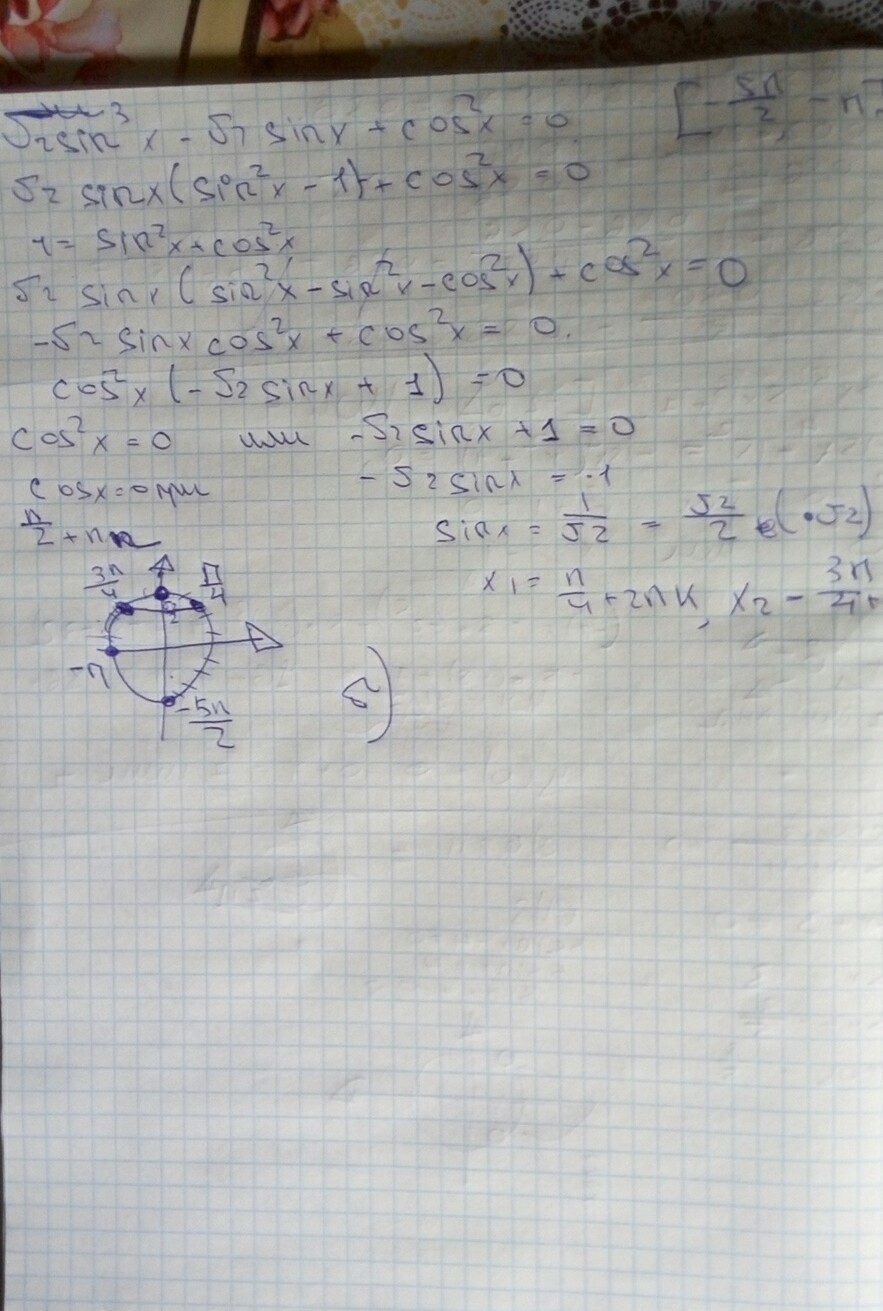 √2sin³x - √2 sinx + cos²x = 0 [-5π/2, -π]
√2 sinx(sin²x - 1) + cos²x = 0
1 = sin²x + cos²x
√2 sinx (sin²x - sin²x - cos²x) + cos²x = 0
-√2 sinx cos²x + cos²x = 0.
cos²x (-√2 sinx + 1) = 0
cos²x = 0 или -√2 sinx + 1 = 0
cosx = 0 при - √2 sinx = -1
π/2 + πn sinx = 1/√2 = √2/2 (·√2)
x₁ = π/4 + 2πk, x₂ - 3π/4 +
3π/4 π/4
-π
-5π/2
б)